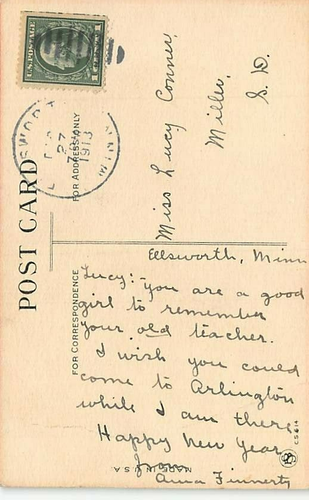 U.S. POSTAGE
1 CENT 1
ELLSWORTH
DEC
27
7 AM
1913
MINN
POST CARD
FOR ADDRESS ONLY
Miss Lucy Conner,
Miller,
S. D.
FOR CORRESPONDENCE
Ellsworth, Minn
Lucy: You are a good
girl to remember
your old teacher.
I wish you could
come to Arlington
while I am there
Happy New Year
Anna Finnerty
MADE IN U.S.A
C S 614